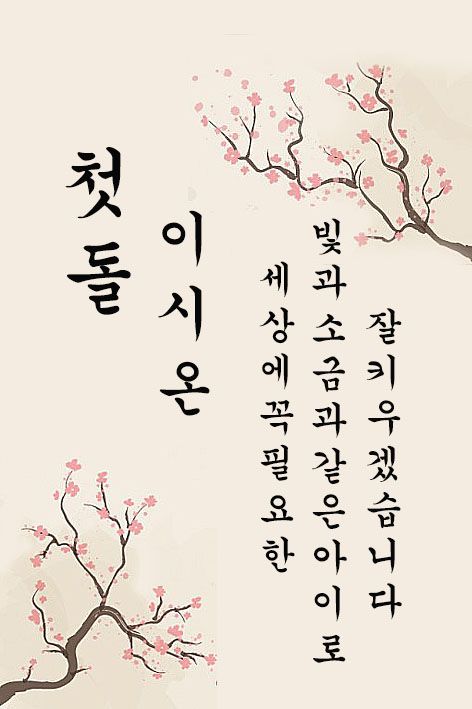 첫돌
이시온
세상에꼭필요한
빛과소금과같은아이로
잘키우겠습니다